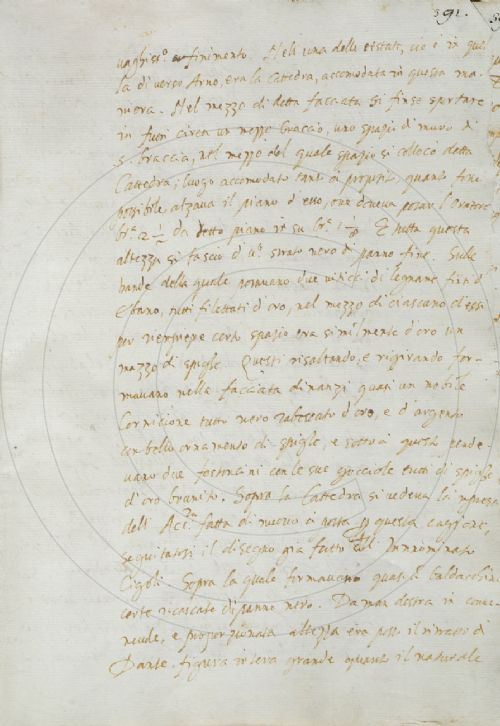 391.
vaghiss.o finimento. Nell'una delle testate, cioè in quel
la di verso Arno, era la Cattedra, accomodata in questa ma
niera. Nel mezzo di detta facciata si finse sportare
in fuori circa un mezzo braccio, uno spazio di muro di
5. braccia, nel mezzo del quale spazio si collocò detta
Cattedra; luogo accomodato tanto à proposito quanto fusse
possibile, alzava il piano d'esso, ove doveva posar l'Oratore
br.a 2 1/2 da detto piano in su br.a 1 E tutta questa
altezza si fasciò d'un strato nero di panno fine. Sulle
bande della quale posavano due viticci di legname finto
Ebano, tutti filettati d'oro, nel mezzo di ciascuno d'essi
per riempire certo spazio era similmente d'oro un
mazzo di spighe. Questi risaltando, e rigirando for
mavano nella facciata dinanzi quasi un nobile
Cornicione tutto nero rabescato d'oro, e d'argento
con bello ornamento di spighe, e sotto à questo pende
vano due festoncini con le sue gocciole tutti di spighe
d'oro brunito. Sopra la Cattedra si vedeva la impresa
dell' Acc.a fatta di nuovo à posta questa cagione,
seguitatosi il disegno già fatto dal Innominato
Cigoli. Sopra la quale formavano quasi baldacchino
certe ricascate di panno nero. Da man destra in conve
nevole, e proporzionata altezza era posto il ritratto di
Dante. figura intera grande quanto il naturale